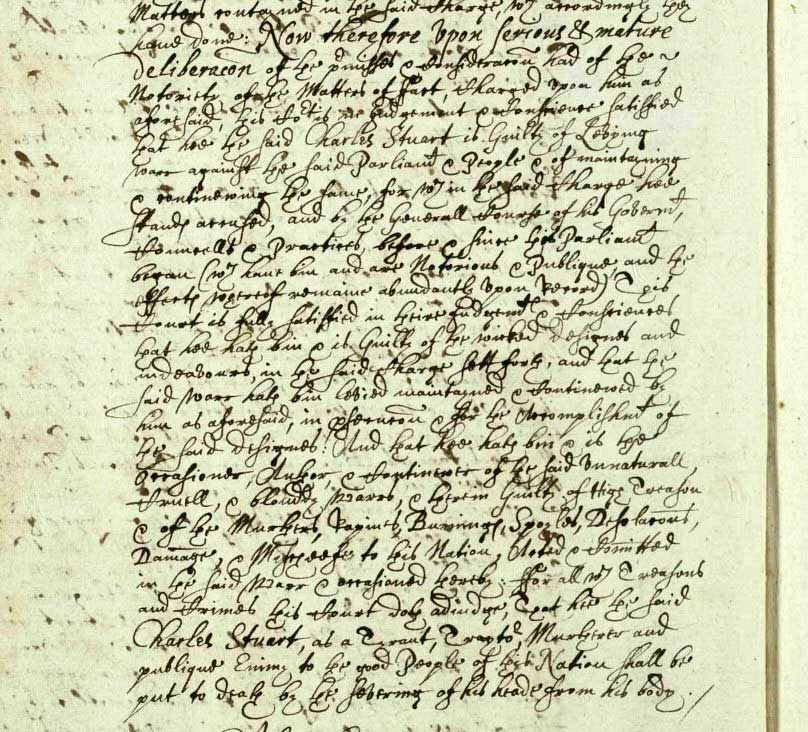 Matters contained in the said Charge, wch accordingly they
have done: Now therefore upon serious & mature
deliberacon of the p'misses & Consideracon had of the
Notoriety of the Matters of Fact, Charged upon him as
aforesaid, this Cort is in Judgement & Conscience satisfied
that hee the said Charles Stuart is Guilty of Levying
Warr against the said Parliamt & People & of maintayning
& contineweing the same, for wch in the said Charge hee
stands accused, and by the Generall Course of his Governmt,
Councells & Practices, before & since this Parliamt
began (wch have bin and are Notorious & Publique, and the
effects whereof remaine abundantly upon Record) This
Court is fully satisfied in theire Judgemts & Consciences
that hee hath bin & is Guilty of the wicked designes and
indeavours, in the said Charge sett forth, and that the
said Warr hath bin levied maintained & Continewed by
him as aforesaid, in psecucon & for the Accomplishmt of
the said designes: And that hee hath bin & is the
Occasioner, Author, & Continewer of the said Unnaturall,
Cruell, & bloudy Warrs, & therein Guilty of High Treason
& of the Murthers, Rapines, Burnings, Spoyles, Desolacons,
Damage, & Mischeefe to this Nation, Acted & Comitted
in the said Warr & occasioned thereby: For all wch Treasons
and Crimes this Court doth adiudge, That hee the said
Charles Stuart, as a Tyrant, Traytor, Murtherer and
publique Enimy to the good People of this Nation shall be
put to death by the severing of his heade from his body. /